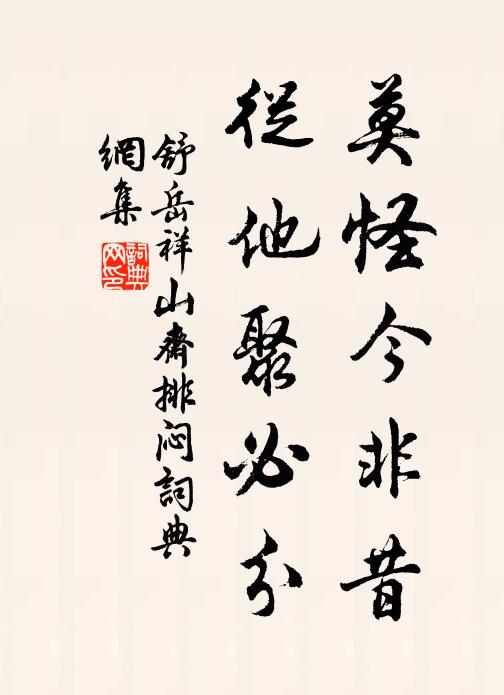 莫怪今非昔
從他聚必分
舒岳祥山齋排闷詞典
網集
詞典
网印